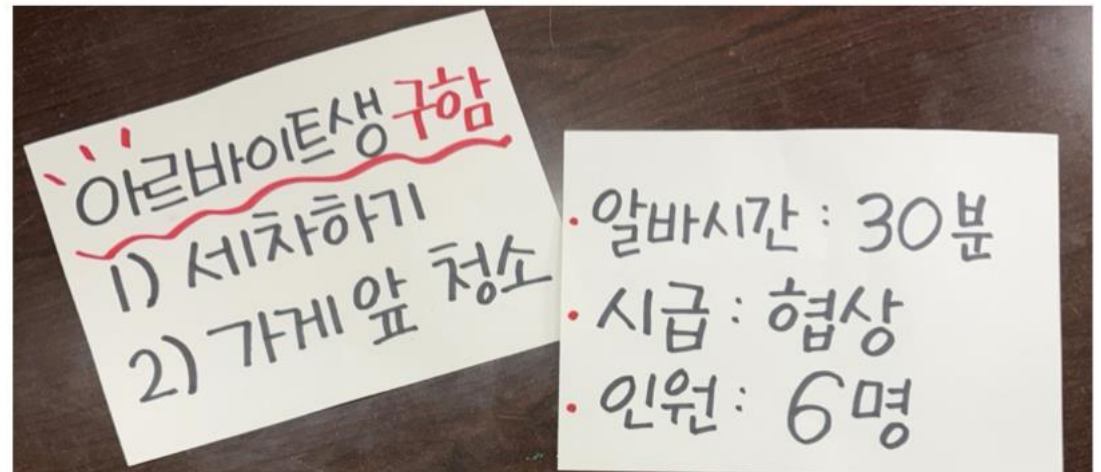 아르바이트생 구함
1) 세차하기
2) 가게 앞 청소
· 알바시간 : 30분
· 시급 : 협상
· 인원 : 6명